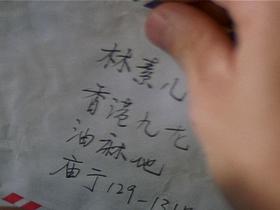 林素儿
香港九龙
油麻地
庙于129-131